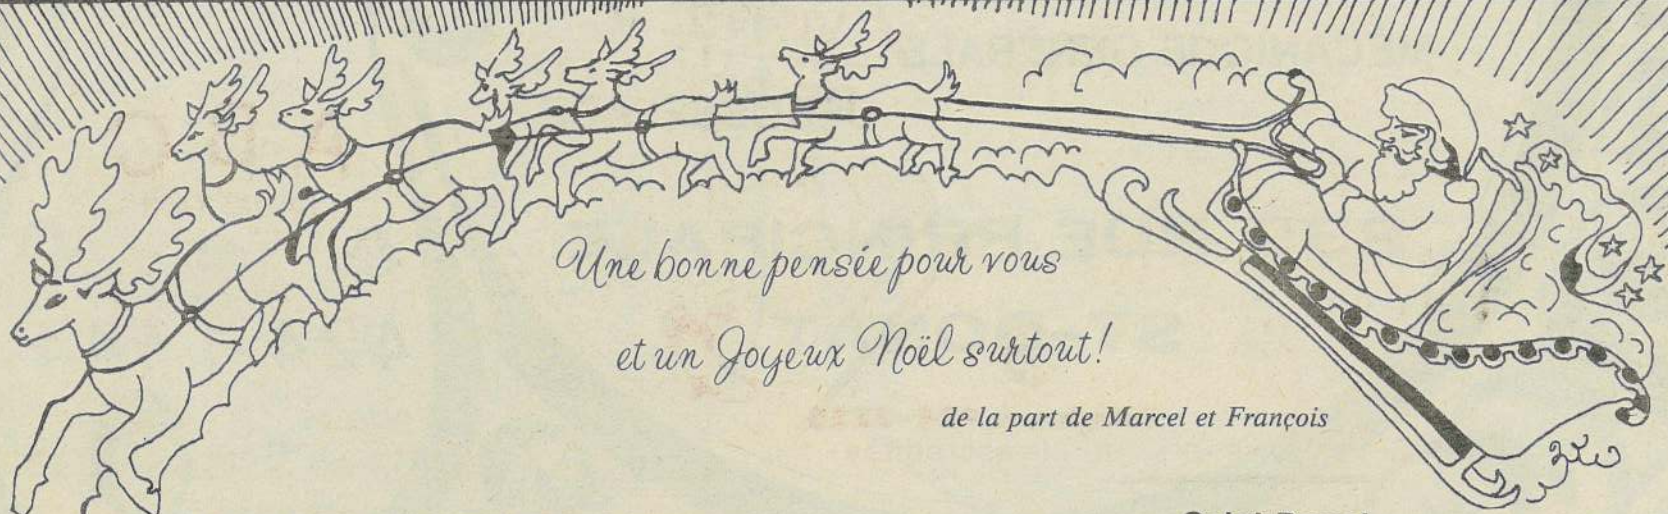 Une bonne pensée pour vous
et un Joyeux Noël surtout!
de la part de Marcel et François